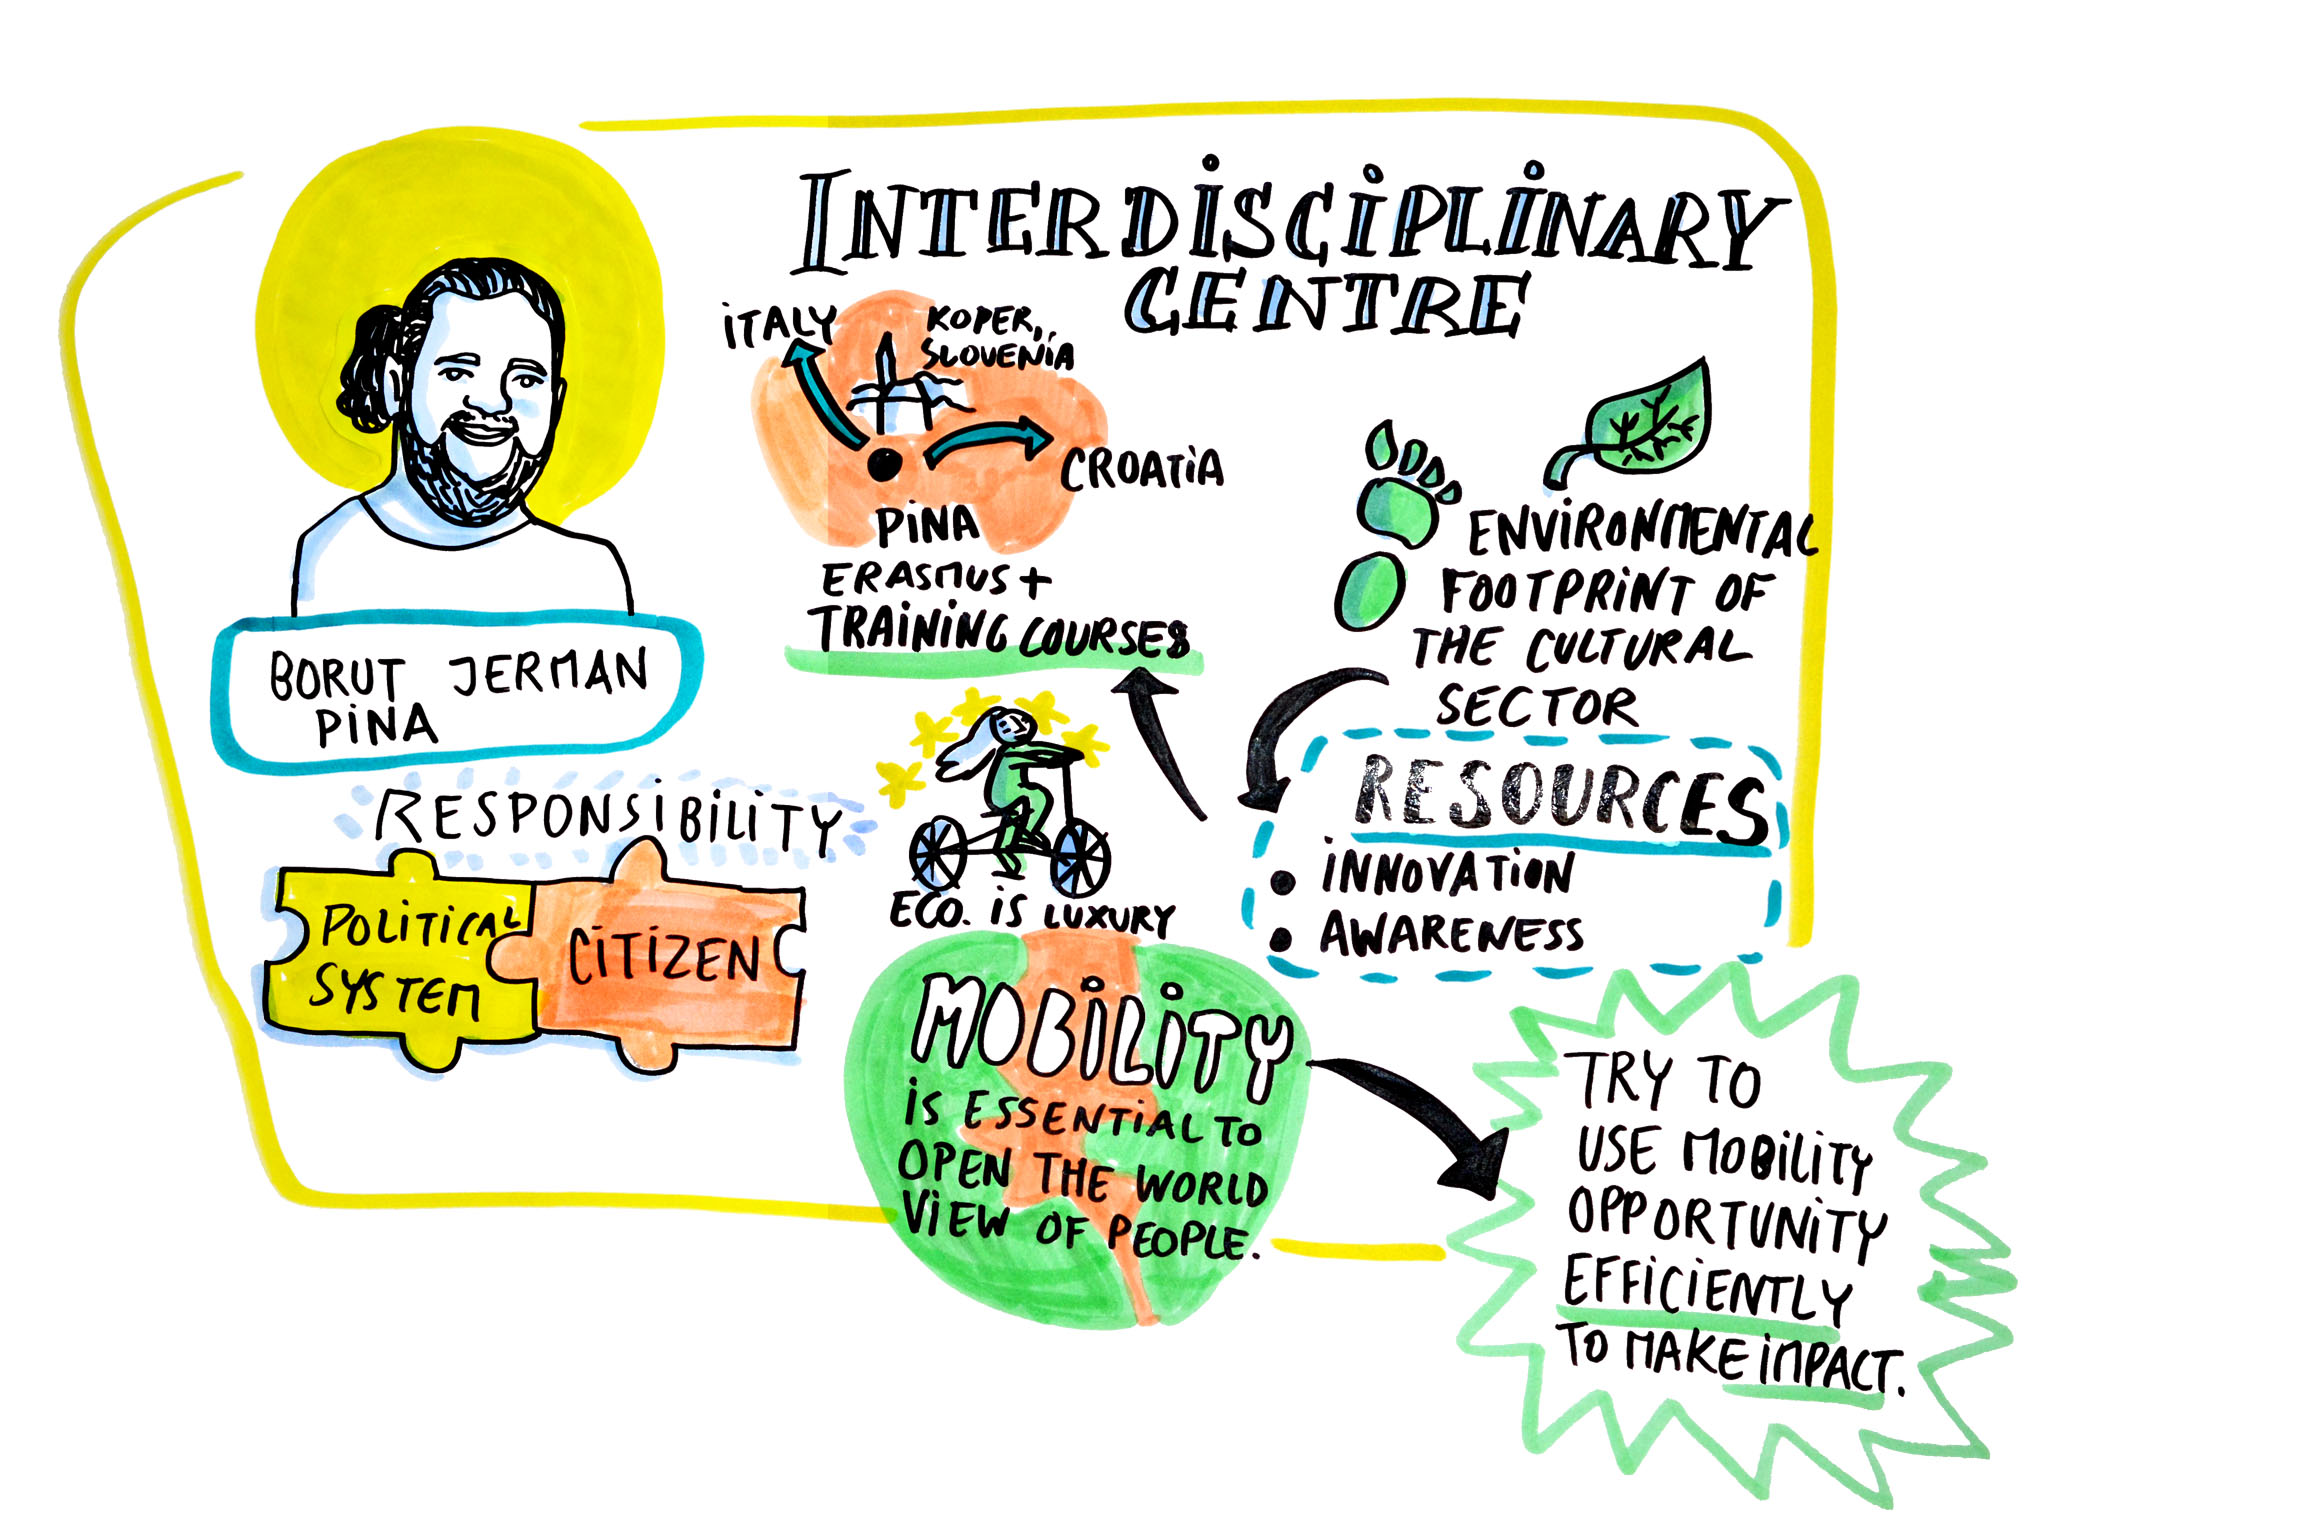 INTERDISCIPLINARY
CENTRE
ITALY
KOPER,
SLOVENIA
CROATIA
PINA
ERASMUS +
TRAINING COURSES
BORUT JERMAN
PINA
RESPONSIBILITY
POLITICAL
SYSTEM
CITIZEN
ECO. IS LUXURY
ENVIRONMENTAL
FOOTPRINT OF
THE CULTURAL
SECTOR
RESOURCES
• INNOVATION
• AWARENESS
MOBILITY
IS ESSENTIAL TO
OPEN THE WORLD
VIEW OF PEOPLE.
TRY TO
USE MOBILITY
OPPORTUNITY
EFFICIENTLY
TO MAKE IMPACT.